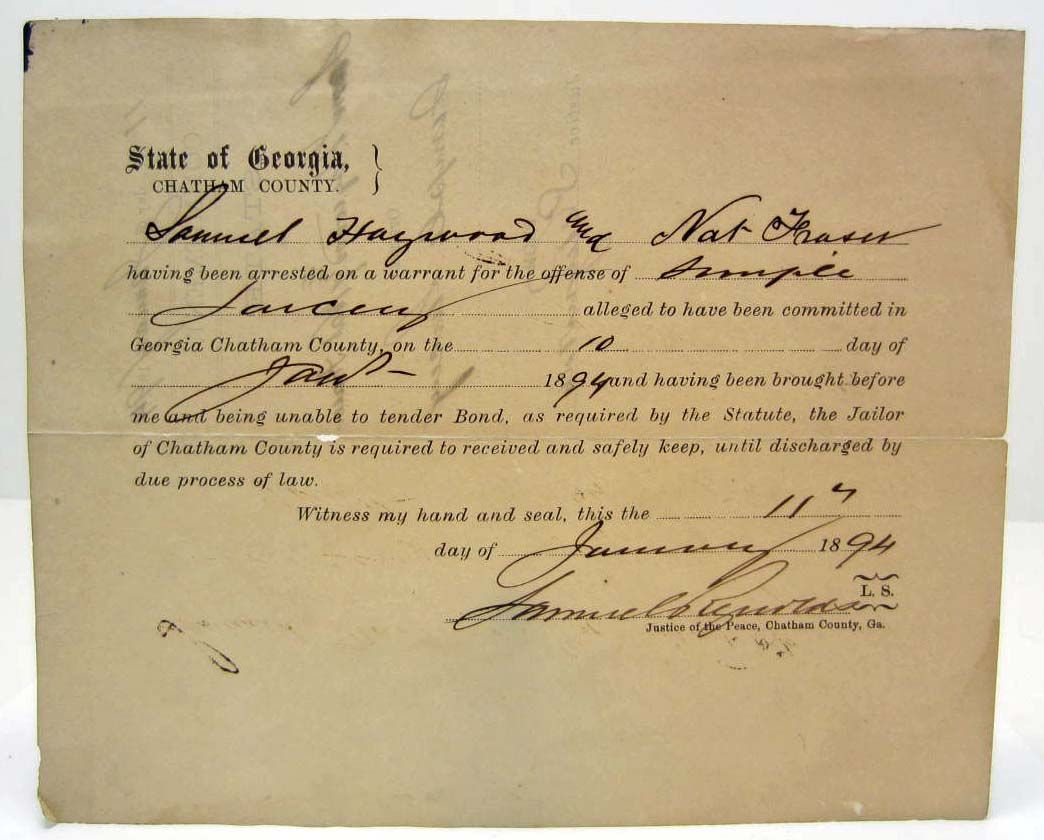 State of Georgia, }
CHATHAM COUNTY.
Samuel Haywood and Nat Fraser
having been arrested on a warrant for the offense of simple
Larceny alleged to have been committed in
Georgia Chatham County, on the 10 day of
Jany 1894 and having been brought before
me and being unable to tender Bond, as required by the Statute, the Jailor
of Chatham County is required to received and safely keep, until discharged by
due process of law.
Witness my hand and seal, this the 11
day of January 1894
Samuel Reynolds L. S.
Justice of the Peace, Chatham County, Ga.